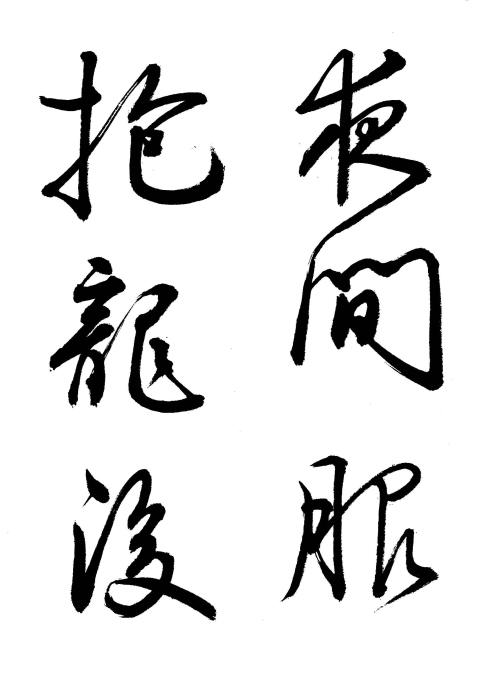 夜間服
抱龍後